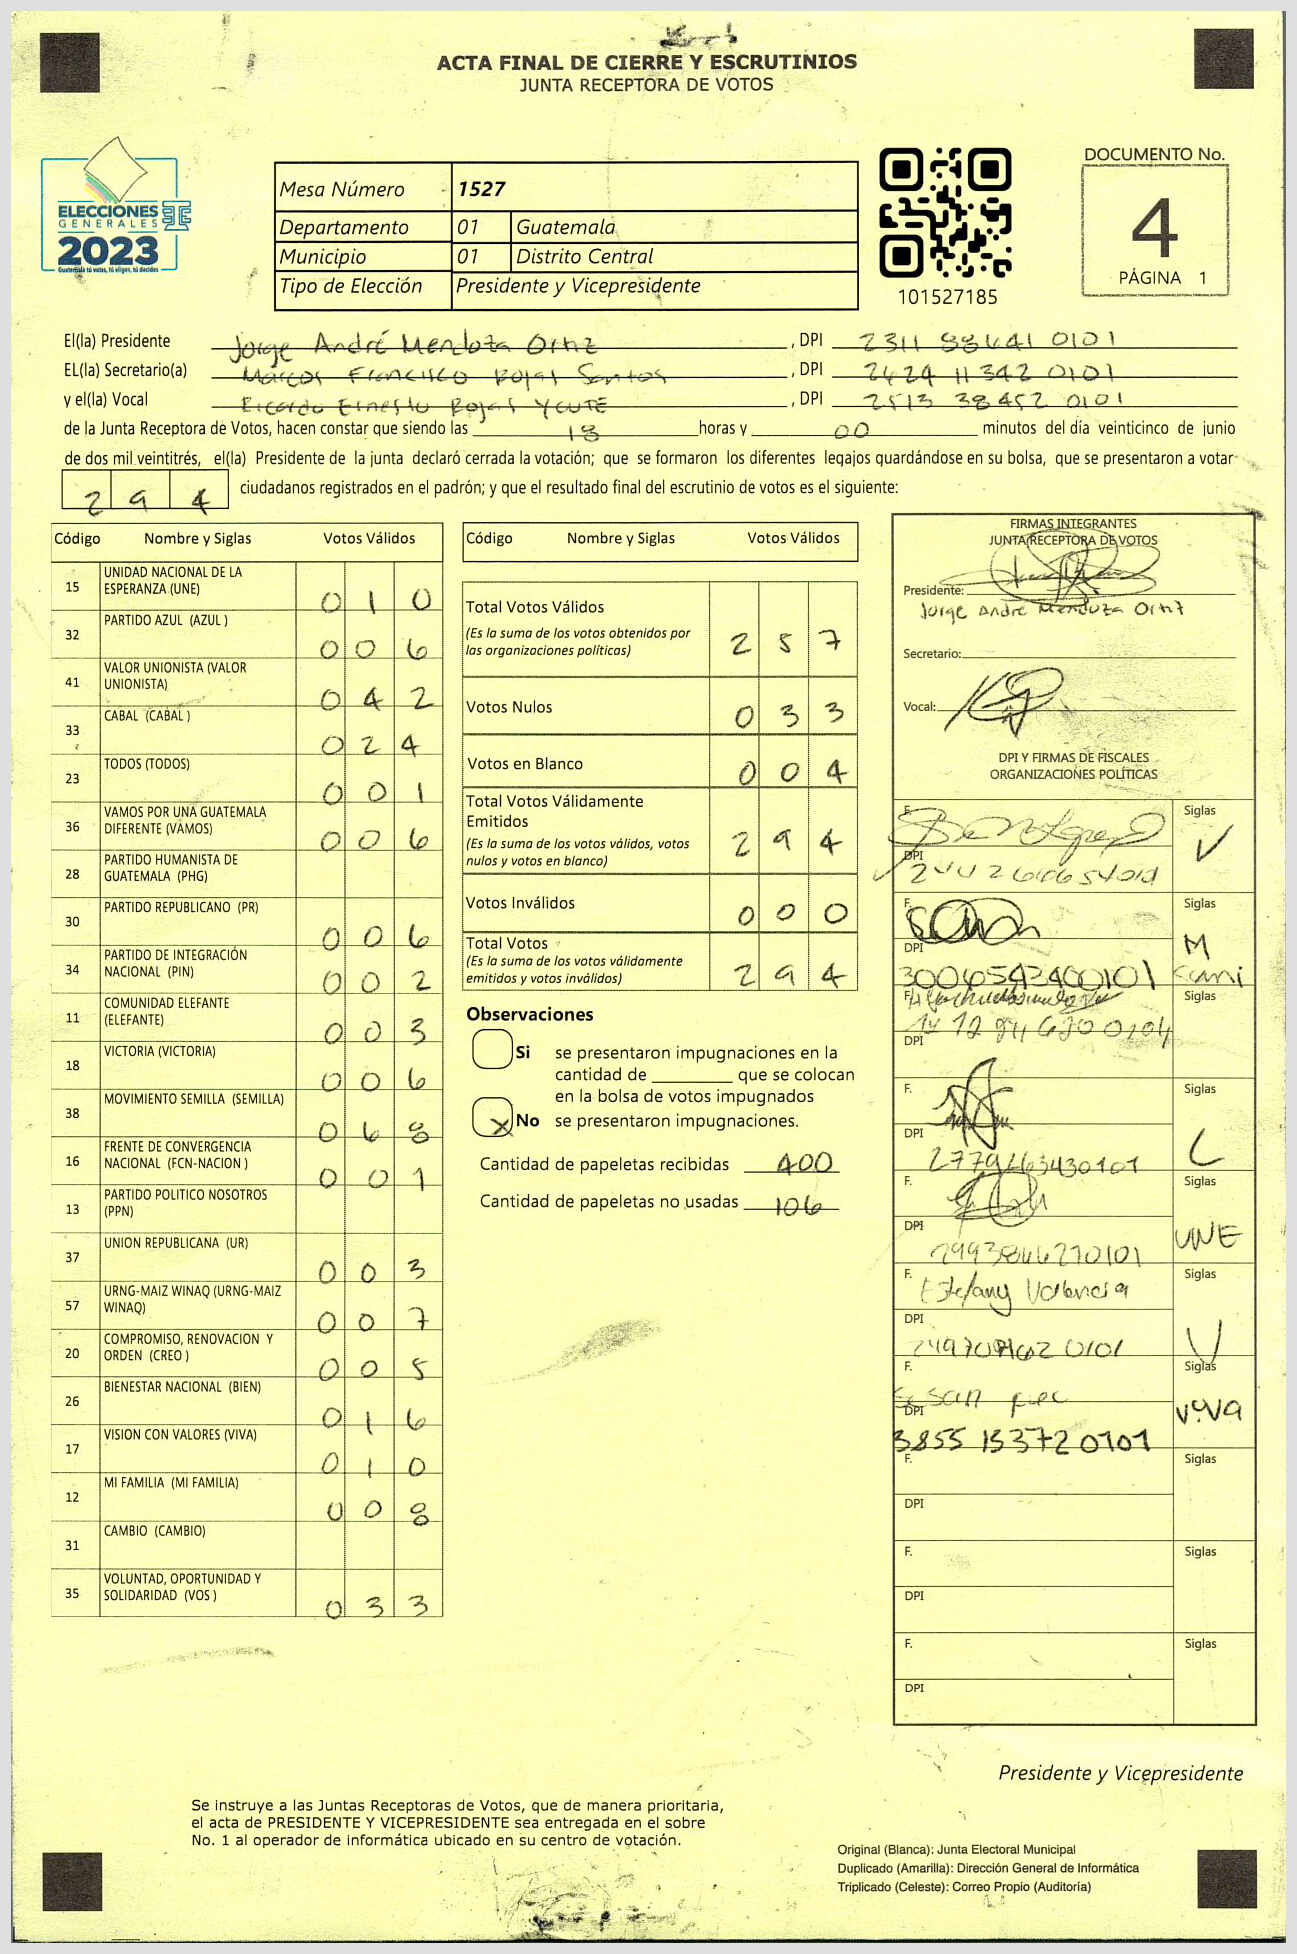 ACTA FINAL DE CIERRE Y ESCRUTINIOS
JUNTA RECEPTORA DE VOTOS
ELECCIONES
GENERALES
2023
Guatemala tú votas, tú eliges, tú decides
Mesa Número 1527
Departamento 01 Guatemala
Municipio 01 Distrito Central
Tipo de Elección Presidente y Vicepresidente
101527185
DOCUMENTO No.
4
PÁGINA 1
El(la) Presidente Jorge André Mendoza Ortiz , DPI 2311 88641 0101
EL(la) Secretario(a) Marcos Francisco Rojas Santos , DPI 2424 11342 0101
y el(la) Vocal Ricardo Ernesto Rojas YCUTE , DPI 2513 38452 0101
de la Junta Receptora de Votos, hacen constar que siendo las 18 horas y 00 minutos del día veinticinco de junio
de dos mil veintitrés, el(la) Presidente de la junta declaró cerrada la votación; que se formaron los diferentes legajos guardándose en su bolsa, que se presentaron a votar
294 ciudadanos registrados en el padrón; y que el resultado final del escrutinio de votos es el siguiente:
Código Nombre y Siglas Votos Válidos
15 UNIDAD NACIONAL DE LA
ESPERANZA (UNE) 010
32 PARTIDO AZUL (AZUL ) 006
41 VALOR UNIONISTA (VALOR
UNIONISTA) 042
33 CABAL (CABAL ) 024
23 TODOS (TODOS) 001
36 VAMOS POR UNA GUATEMALA
DIFERENTE (VAMOS) 006
28 PARTIDO HUMANISTA DE
GUATEMALA (PHG)
30 PARTIDO REPUBLICANO (PR) 006
34 PARTIDO DE INTEGRACIÓN
NACIONAL (PIN) 002
11 COMUNIDAD ELEFANTE
(ELEFANTE) 003
18 VICTORIA (VICTORIA) 006
38 MOVIMIENTO SEMILLA (SEMILLA) 068
16 FRENTE DE CONVERGENCIA
NACIONAL (FCN-NACION ) 001
13 PARTIDO POLITICO NOSOTROS
(PPN)
37 UNION REPUBLICANA (UR) 003
57 URNG-MAIZ WINAQ (URNG-MAIZ
WINAQ) 007
20 COMPROMISO, RENOVACION Y
ORDEN (CREO ) 005
26 BIENESTAR NACIONAL (BIEN) 016
17 VISION CON VALORES (VIVA) 010
12 MI FAMILIA (MI FAMILIA) 008
31 CAMBIO (CAMBIO)
35 VOLUNTAD, OPORTUNIDAD Y
SOLIDARIDAD (VOS ) 033
Código Nombre y Siglas Votos Válidos
Total Votos Válidos 257
(Es la suma de los votos obtenidos por
las organizaciones políticas)
Votos Nulos 033
Votos en Blanco 004
Total Votos Válidamente
Emitidos 294
(Es la suma de los votos válidos, votos
nulos y votos en blanco)
Votos Inválidos 000
Total Votos 294
(Es la suma de los votos válidamente
emitidos y votos inválidos)
Observaciones
Si se presentaron impugnaciones en la
cantidad de ________ que se colocan
en la bolsa de votos impugnados
X No se presentaron impugnaciones.
Cantidad de papeletas recibidas 400
Cantidad de papeletas no usadas 106
FIRMAS INTEGRANTES
JUNTA RECEPTORA DE VOTOS
Presidente:
Jorge André Mendoza Ortiz
Secretario:
Vocal:
DPI Y FIRMAS DE FISCALES
ORGANIZACIONES POLÍTICAS
F. Siglas V
DPI
F. Siglas M
DPI 3006543400101 Semi
F. Siglas
DPI
F. Siglas C
DPI 2779463430101
F. Siglas UNE
DPI 2993846270101
F. Estefany Valencia Siglas V
DPI
F. Susan Siglas ViVa
DPI 3855 153720101
F. Siglas
DPI
F. Siglas
DPI
F. Siglas
DPI
Presidente y Vicepresidente
Se instruye a las Juntas Receptoras de Votos, que de manera prioritaria,
el acta de PRESIDENTE Y VICEPRESIDENTE sea entregada en el sobre
No. 1 al operador de informática ubicado en su centro de votación.
Original (Blanca): Junta Electoral Municipal
Duplicado (Amarilla): Dirección General de Informática
Triplicado (Celeste): Correo Propio (Auditoría)